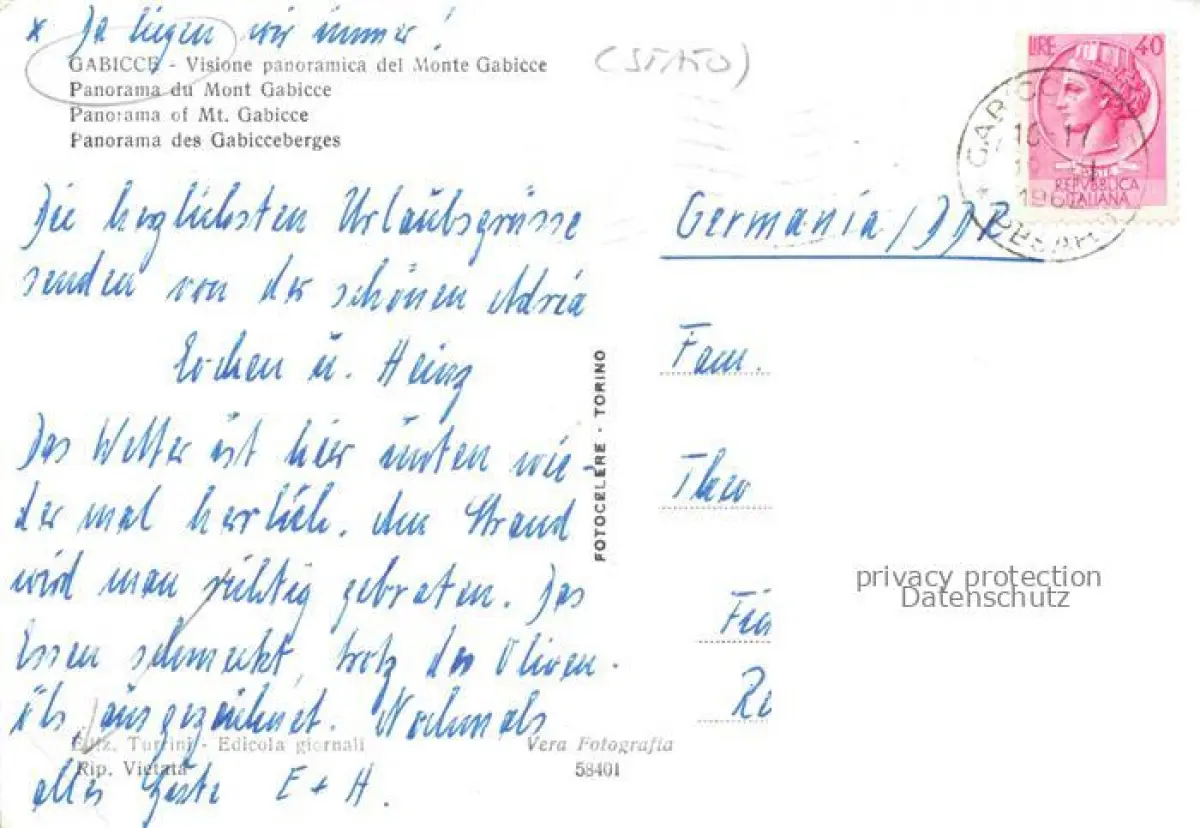 x Da liegen wir immer!
GABICCE - Visione panoramica del Monte Gabicce
Panorama du Mont Gabicce
Panorama of Mt. Gabicce
Panorama des Gabicceberges
Die herzlichsten Urlaubsgrüsse
senden von der schönen Adria
Lochen u. Heinz
Das Wetter ist hier unten wie-
der mal herrlich. Am Strand
wird man richtig gebraten. Das
Essen schmeckt, trotz des Oliven-
öls, ausgezeichnet. Nochmals
alles Gute E + H.
Ediz. Turrini - Edicola giornali
Rip. Vietata
Vera Fotografia
58401
FOTOCELERE - TORINO
LIRE 40
POSTE
REPVBBLICA
ITALIANA
GABICCE
10-11
196
PESARO
Germania/DDR
Fam.
Theo
privacy protection
Datenschutz
Re